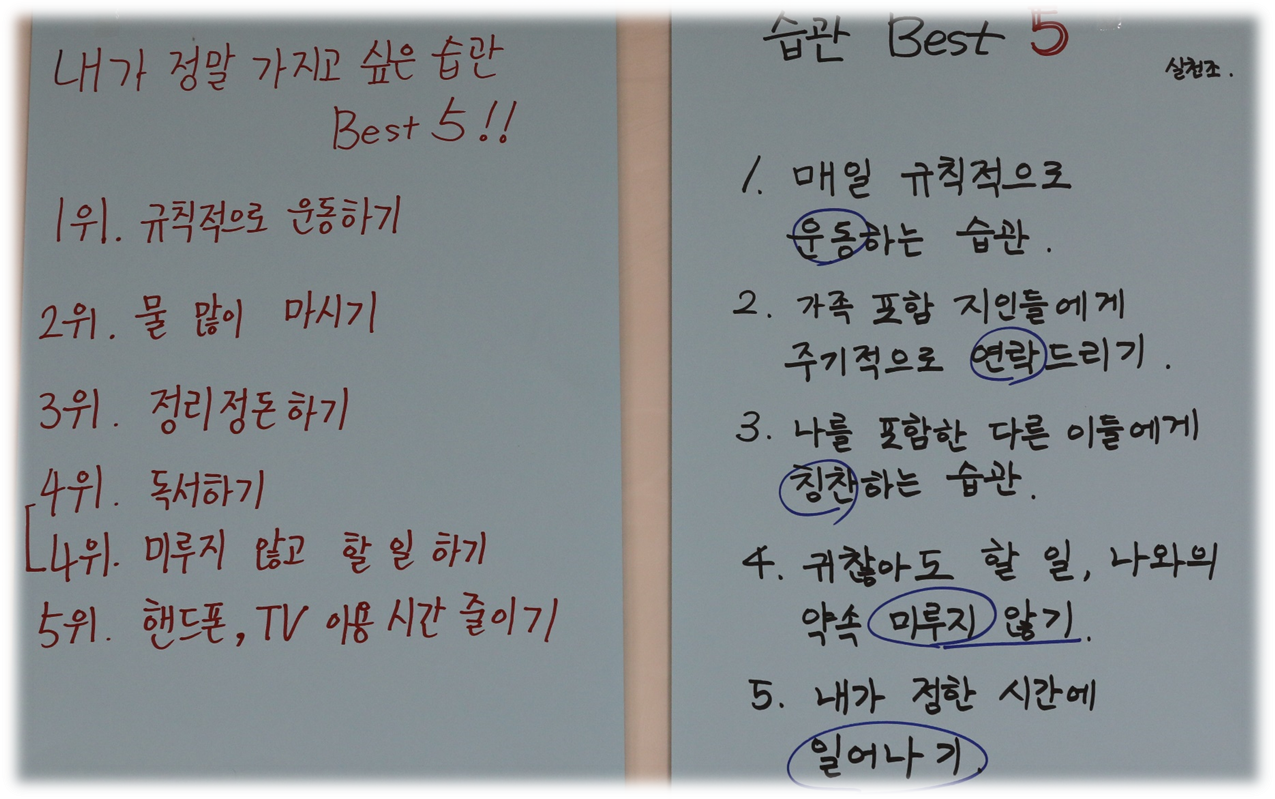 내가 정말 가지고 싶은 습관
Best 5!!
1위. 규칙적으로 운동하기
2위. 물 많이 마시기
3위. 정리정돈하기
4위. 독서하기
4위. 미루지 않고 할 일 하기
5위. 핸드폰, TV 이용 시간 줄이기
습관 Best 5
실천조.
1. 매일 규칙적으로
운동하는 습관.
2. 가족 포함 지인들에게
주기적으로 연락드리기.
3. 나를 포함한 다른 이들에게
칭찬하는 습관.
4. 귀찮아도 할 일, 나와의
약속 미루지 않기.
5. 내가 정한 시간에
일어나기.